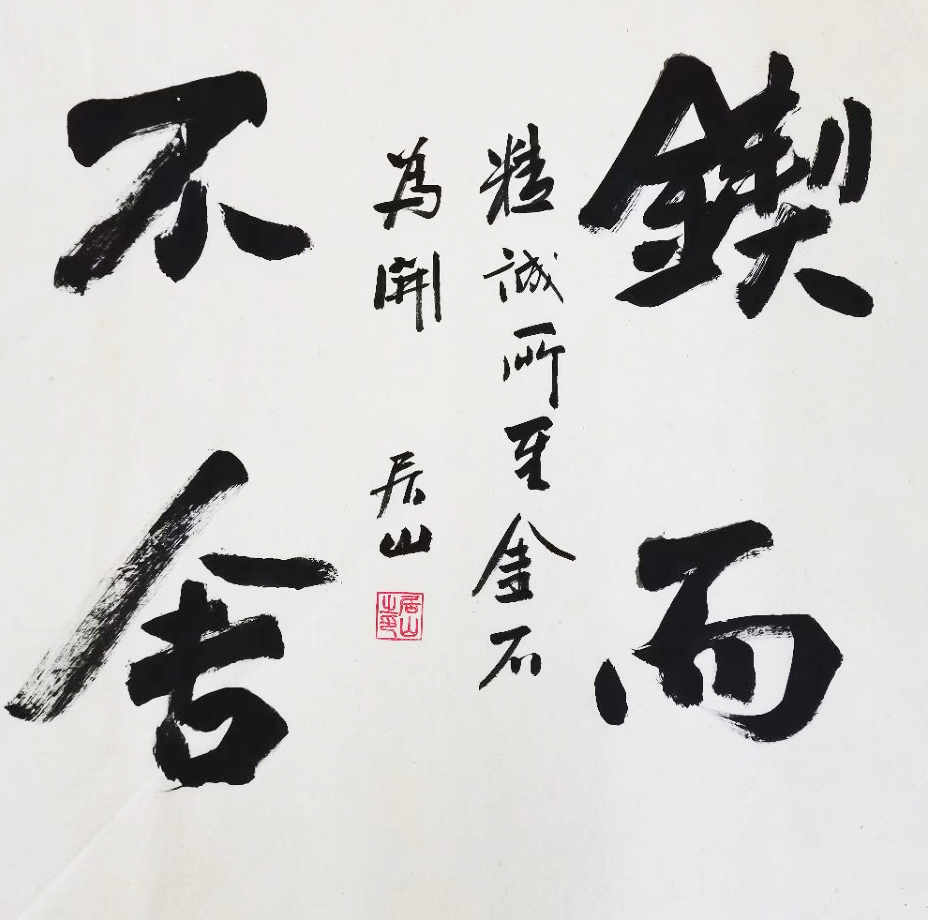 鍥而
不舍
精誠所至金石
為開 居山
居山之印